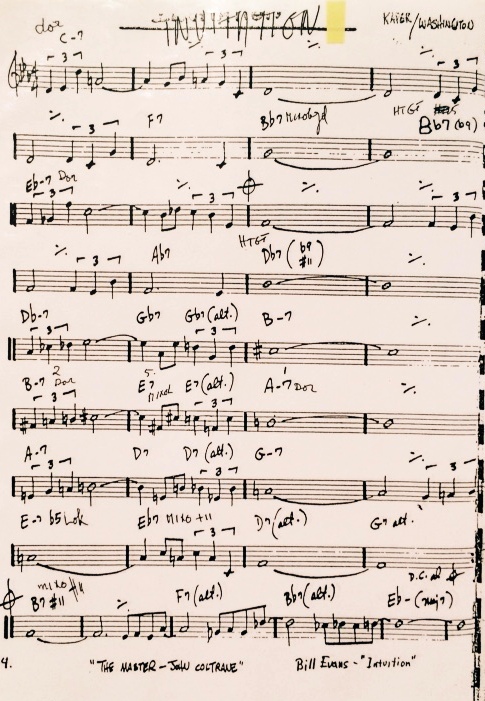 INVITATION
KAPER/WASHINGTON
dor
C-7
3
3
3
HTGT
F7
Bb7 Mixolyd
Bb7(b9)
3
Eb-7 Dor
3
3
3
Ab7
HTGT
Db7 (b9 #11)
3
Db-7
Gb7
Gb7(alt.)
B-7
3
3
B-7 Dor
E7 mixol
E7(alt.)
A-7 Dor
3
3
A-7
D7
D7(alt.)
G-7
3
3
3
E-7 b5 Lok
Eb7 MIXO #11
D7(alt.)
G7 alt.
3
D.C. al
mixo #11
B7 #11
F7(alt.)
Bb7(alt.)
Eb-(maj7)
4.
"THE MASTER - JOHN COLTRANE"
Bill Evans - "Intuition"